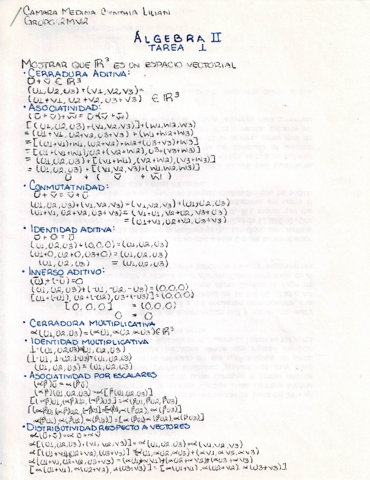 CAMARA MEDINA CYNTHIA LILIAN
GRUPO: 2MV2
ÁLGEBRA II
TAREA 1
MOSTRAR QUE ℝ³ ES UN ESPACIO VECTORIAL
• CERRADURA ADITIVA:
ū + v̄ ∈ ℝ³
(u1, u2, u3) + (v1, v2, v3) =
(u1+v1, u2+v2, u3+v3) ∈ ℝ³
• ASOCIATIVIDAD:
(ū + v̄) + w̄ = ū + (v̄ + w̄)
[(u1, u2, u3) + (v1, v2, v3)] + (w1, w2, w3)
= (u1+v1, u2+v2, u3+v3) + (w1, w2, w3)
= [(u1+v1)+w1, (u2+v2)+w2, (u3+v3)+w3]
= [u1+(v1+w1), u2+(v2+w2), u3+(v3+w3)]
= (u1, u2, u3) + [(v1+w1), (v2+w2), (v3+w3)]
= (u1, u2, u3) + [(v1, v2, v3) + (w1, w2, w3)]
ū + (v̄ + w̄)
• CONMUTATIVIDAD:
ū + v̄ = v̄ + ū
(u1, u2, u3) + (v1, v2, v3) = (v1, v2, v3) + (u1, u2, u3)
(u1+v1, u2+v2, u3+v3) = (v1+u1, v2+u2, v3+u3)
= (u1+v1, u2+v2, u3+v3)
• IDENTIDAD ADITIVA:
ū + 0 = ū
(u1, u2, u3) + (0,0,0) = (u1, u2, u3)
(u1+0, u2+0, u3+0) = (u1, u2, u3)
(u1, u2, u3) = (u1, u2, u3)
• INVERSO ADITIVO:
(ū) + (-ū) = 0
(u1, u2, u3) + (-u1, -u2, -u3) = (0,0,0)
[u1+(-u1), u2+(-u2), u3+(-u3)] = (0,0,0)
[0, 0, 0] = (0,0,0)
0 = 0
• CERRADURA MULTIPLICATIVA
α(u1, u2, u3) = (αu1, αu2, αu3) ∈ ℝ³
• IDENTIDAD MULTIPLICATIVA
1·(u1, u2, u3) = (u1, u2, u3)
(1·u1, 1·u2, 1·u3) = (u1, u2, u3)
(u1, u2, u3) = (u1, u2, u3)
• ASOCIATIVIDAD POR ESCALARES
(αβ)ū = α(βū)
(αβ)(u1, u2, u3) = α[β(u1, u2, u3)]
[(αβ)u1, (αβ)u2, (αβ)u3] = α(βu1, βu2, βu3)
• DISTRIBUTIVIDAD RESPECTO A VECTORES
α(ū + v̄) = αū + αv̄
α[(u1, u2, u3) + (v1, v2, v3)] = α(u1, u2, u3) + α(v1, v2, v3)